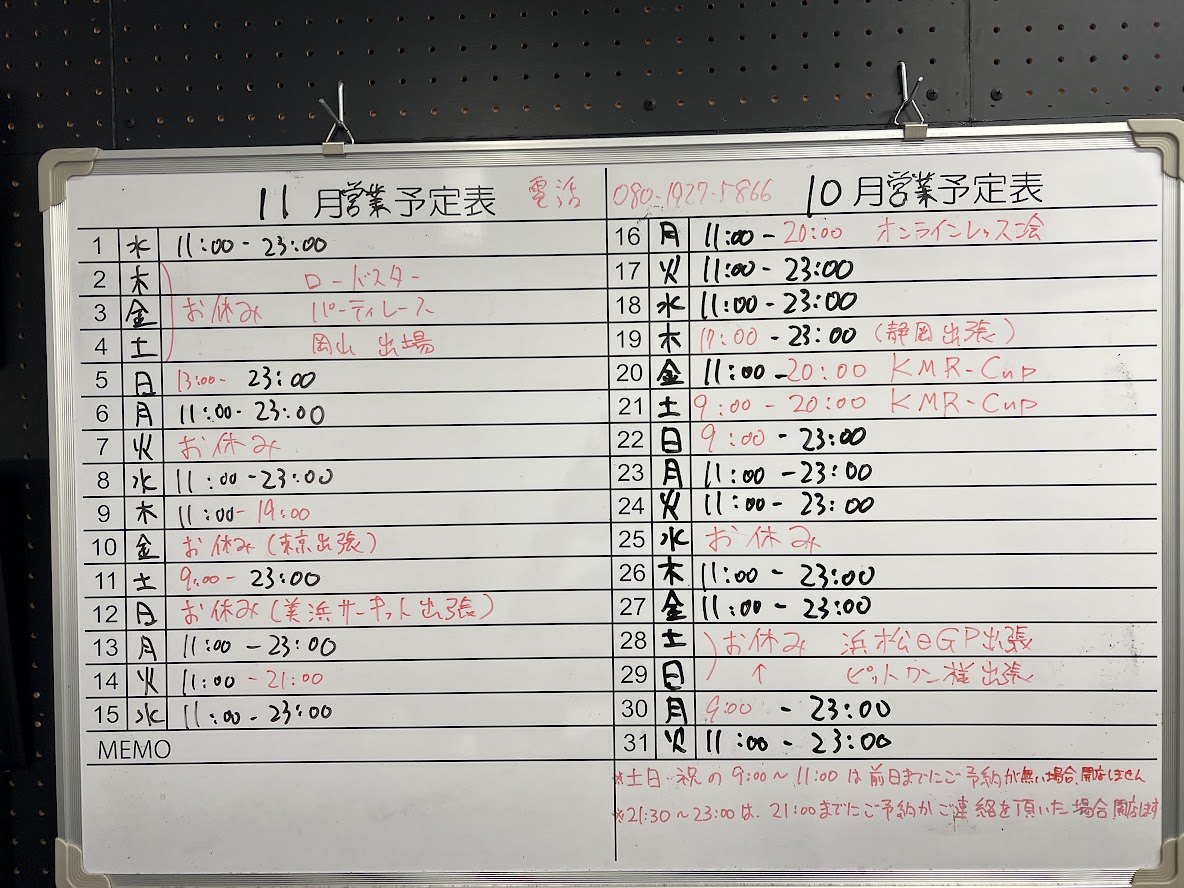 11月営業予定表 電話 080-1927-5866
1 水 11:00 - 23:00
2 木 ロードスター
3 金 お休み パーティレース
4 土 岡山 出場
5 日 13:00 - 23:00
6 月 11:00 - 23:00
7 火 お休み
8 水 11:00 - 23:00
9 木 11:00 - 19:00
10 金 お休み (東京出張)
11 土 9:00 - 23:00
12 日 お休み (美浜サーキット出張)
13 月 11:00 - 23:00
14 火 11:00 - 21:00
15 水 11:00 - 23:00
MEMO
10月営業予定表
16 月 11:00 - 20:00 オンラインレッスン会
17 火 11:00 - 23:00
18 水 11:00 - 23:00
19 木 17:00 - 23:00 (静岡出張)
20 金 11:00 - 20:00 KMR-Cup
21 土 9:00 - 20:00 KMR-Cup
22 日 9:00 - 23:00
23 月 11:00 - 23:00
24 火 11:00 - 23:00
25 水 お休み
26 木 11:00 - 23:00
27 金 11:00 - 23:00
28 土 お休み 浜松eGP出張
29 日 ↑ ピットワン様出張
30 月 9:00 - 23:00
31 火 11:00 - 23:00
※土日・祝の9:00～11:00は前日までにご予約が無い場合、開店しません
※21:30～23:00は、21:00までにご予約かご連絡を頂いた場合開店します